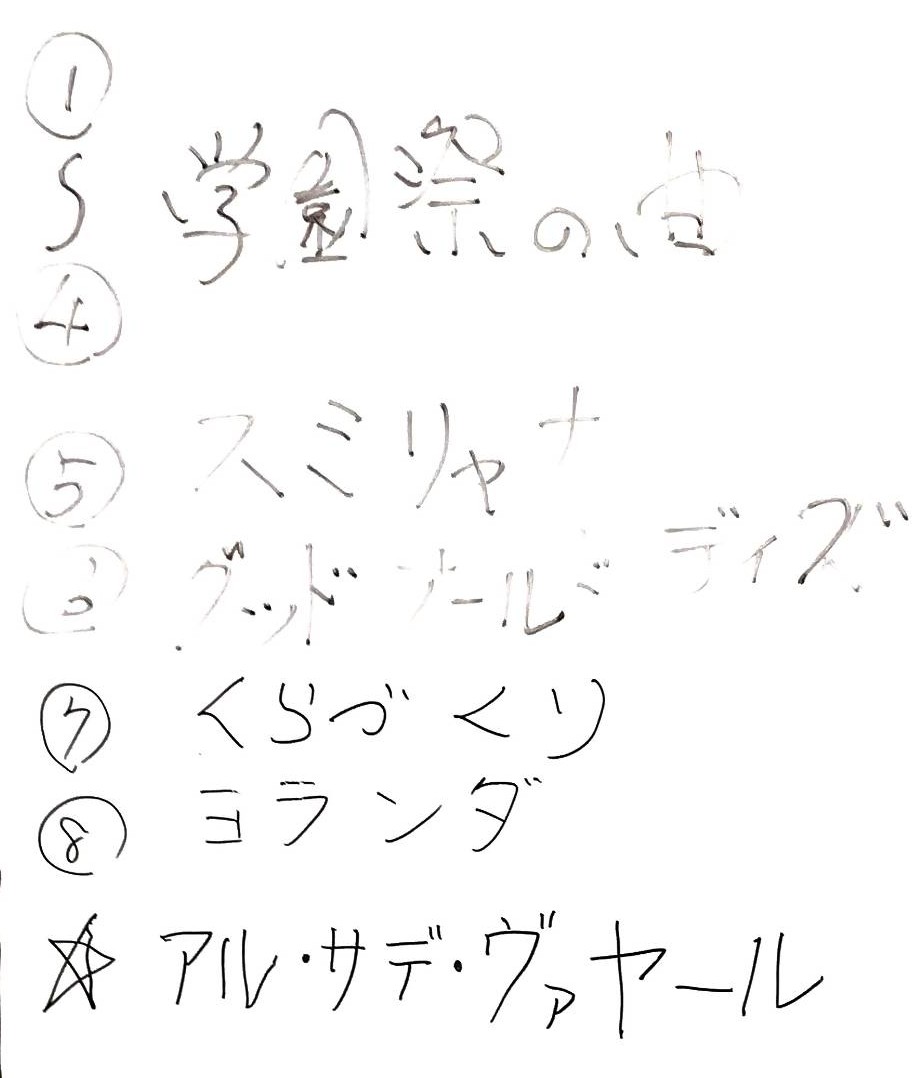 ①
〜 学園祭の曲
④
⑤ スミリャナ
⑥ グッドオールドディズ
⑦ くらづくり
⑧ ヨランダ
☆ アル・サデ・ヴァヤール